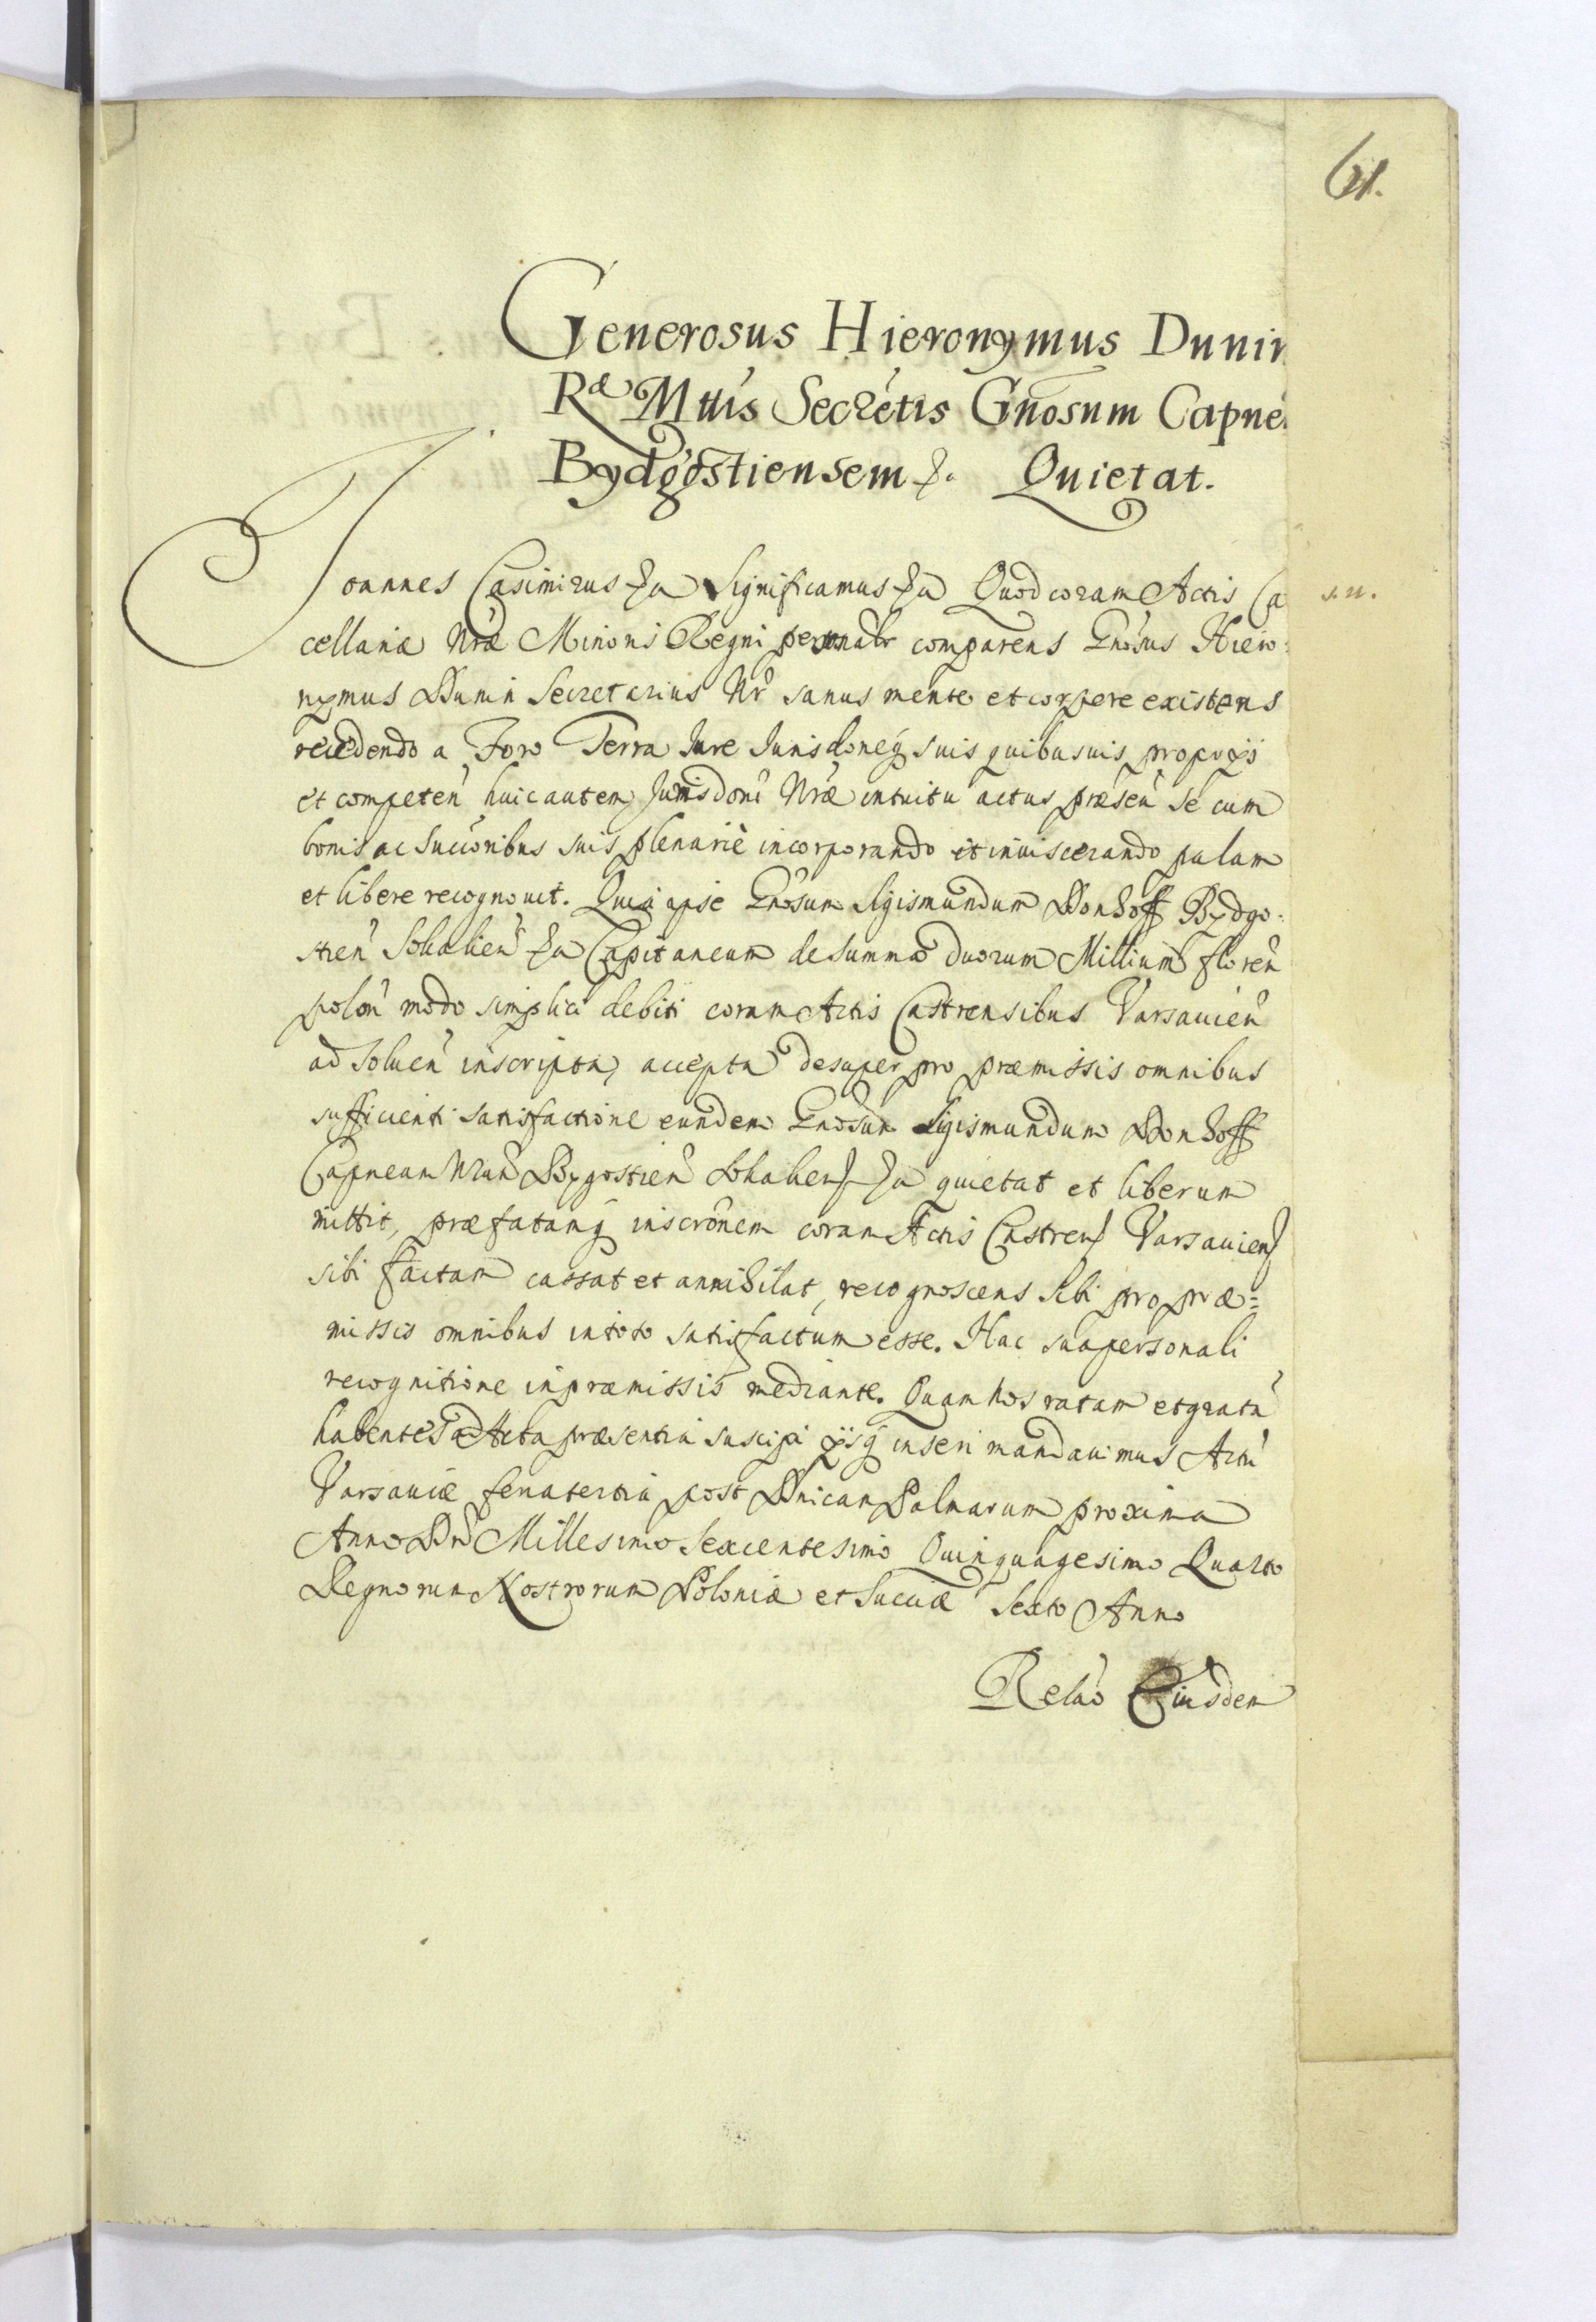 61.
Generosus Hieronymus Dunin
Rae Mttis Secretis Gnosum Capne
Bydgostiensem &. Quietat.
Joannes Casimirus &a Significamus &a Quod coram Actis Ca
s.n.
cellariæ Nræ Minoris Regni personalr comparens Gnosus Hiero:
nymus Dunin Secretarius Nr sanus mente et corpore existens
recedendo a Foro Terra Jure Jurisdoneq suis quibusuis proprijs
et competen huic autem Jurisdoni Nræ intuitu actus præsen se cum
bonis ac Succoribus suis plenarie incorporando et inuiscerando palam
et libere recognouit. Quia ipse Gnosum Sigismundum Donhoff Bydgo:
stien Sokalien &a Capitaneum de summa duorum Millium floren
polon modo simplici debiti coram Actis Castrensibus Varsauien
ad soluen inscripta, accepta desuper pro præmissis omnibus
sufficienti satisfactione eundem Gnosum Sigismundum Donhoff
Capneum Nrum Bygostien Sokaliens &a quietat et liberum
mittit, præfatamq inscronem coram Actis Castrens Varsauiens
sibi factam cassat et annihilat, recognoscens sibi pro præ=
missis omnibus in toto satisfactum esse. Hac sua personali
recognitione in præmissis mediante. Quam nos ratam et grata
habentes ad Acta præsentia suscipi ijsq inseri mandauimus Actu
Varsauiæ feria tertia post Dnicam Palmarum proxima
Anno Dni Millesimo Sexcentesimo Quinquagesimo Quarto
Regnorum Nostrorum Poloniæ et Sueciæ Sexto Anno
Relao Eiusdem